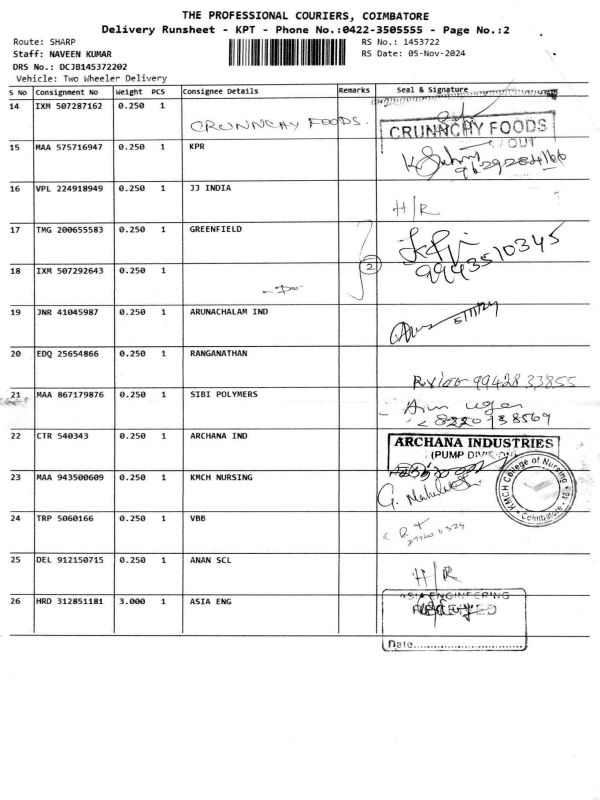 THE PROFESSIONAL COURIERS, COIMBATORE
Delivery Runsheet - KPT - Phone No.:0422-3505555 - Page No.:2
Route: SHARP
RS No.: 1453722
Staff: NAVEEN KUMAR
RS Date: 05-Nov-2024
DRS No.: DCJB145372202
Vehicle: Two Wheeler Delivery
S No Consignment No Weight PCS Consignee Details Remarks Seal & Signature
14 IXM 507287162 0.250 1 CRUNNCHY FOODS.
CRUNNCHY FOODS
/OUT
15 MAA 575716947 0.250 1 KPR
9629284166
16 VPL 224918949 0.250 1 JJ INDIA
H/R
17 TMG 200655583 0.250 1 GREENFIELD
2
9943510345
18 IXM 507292643 0.250 1 -Do-
19 JNR 41045987 0.250 1 ARUNACHALAM IND
20 EDQ 25654866 0.250 1 RANGANATHAN
9942833855
21 MAA 867179876 0.250 1 SIBI POLYMERS
8220738569
22 CTR 540343 0.250 1 ARCHANA IND
ARCHANA INDUSTRIES
(PUMP DIVISION)
23 MAA 943500609 0.250 1 KMCH NURSING
KMCH College of Nursing
Coimbatore
24 TRP 5060166 0.250 1 VBB
25 DEL 912150715 0.250 1 ANAN SCL
H/R
26 HRD 312851181 3.000 1 ASIA ENG
ASIA ENGINEERING
RECEIVED
Date